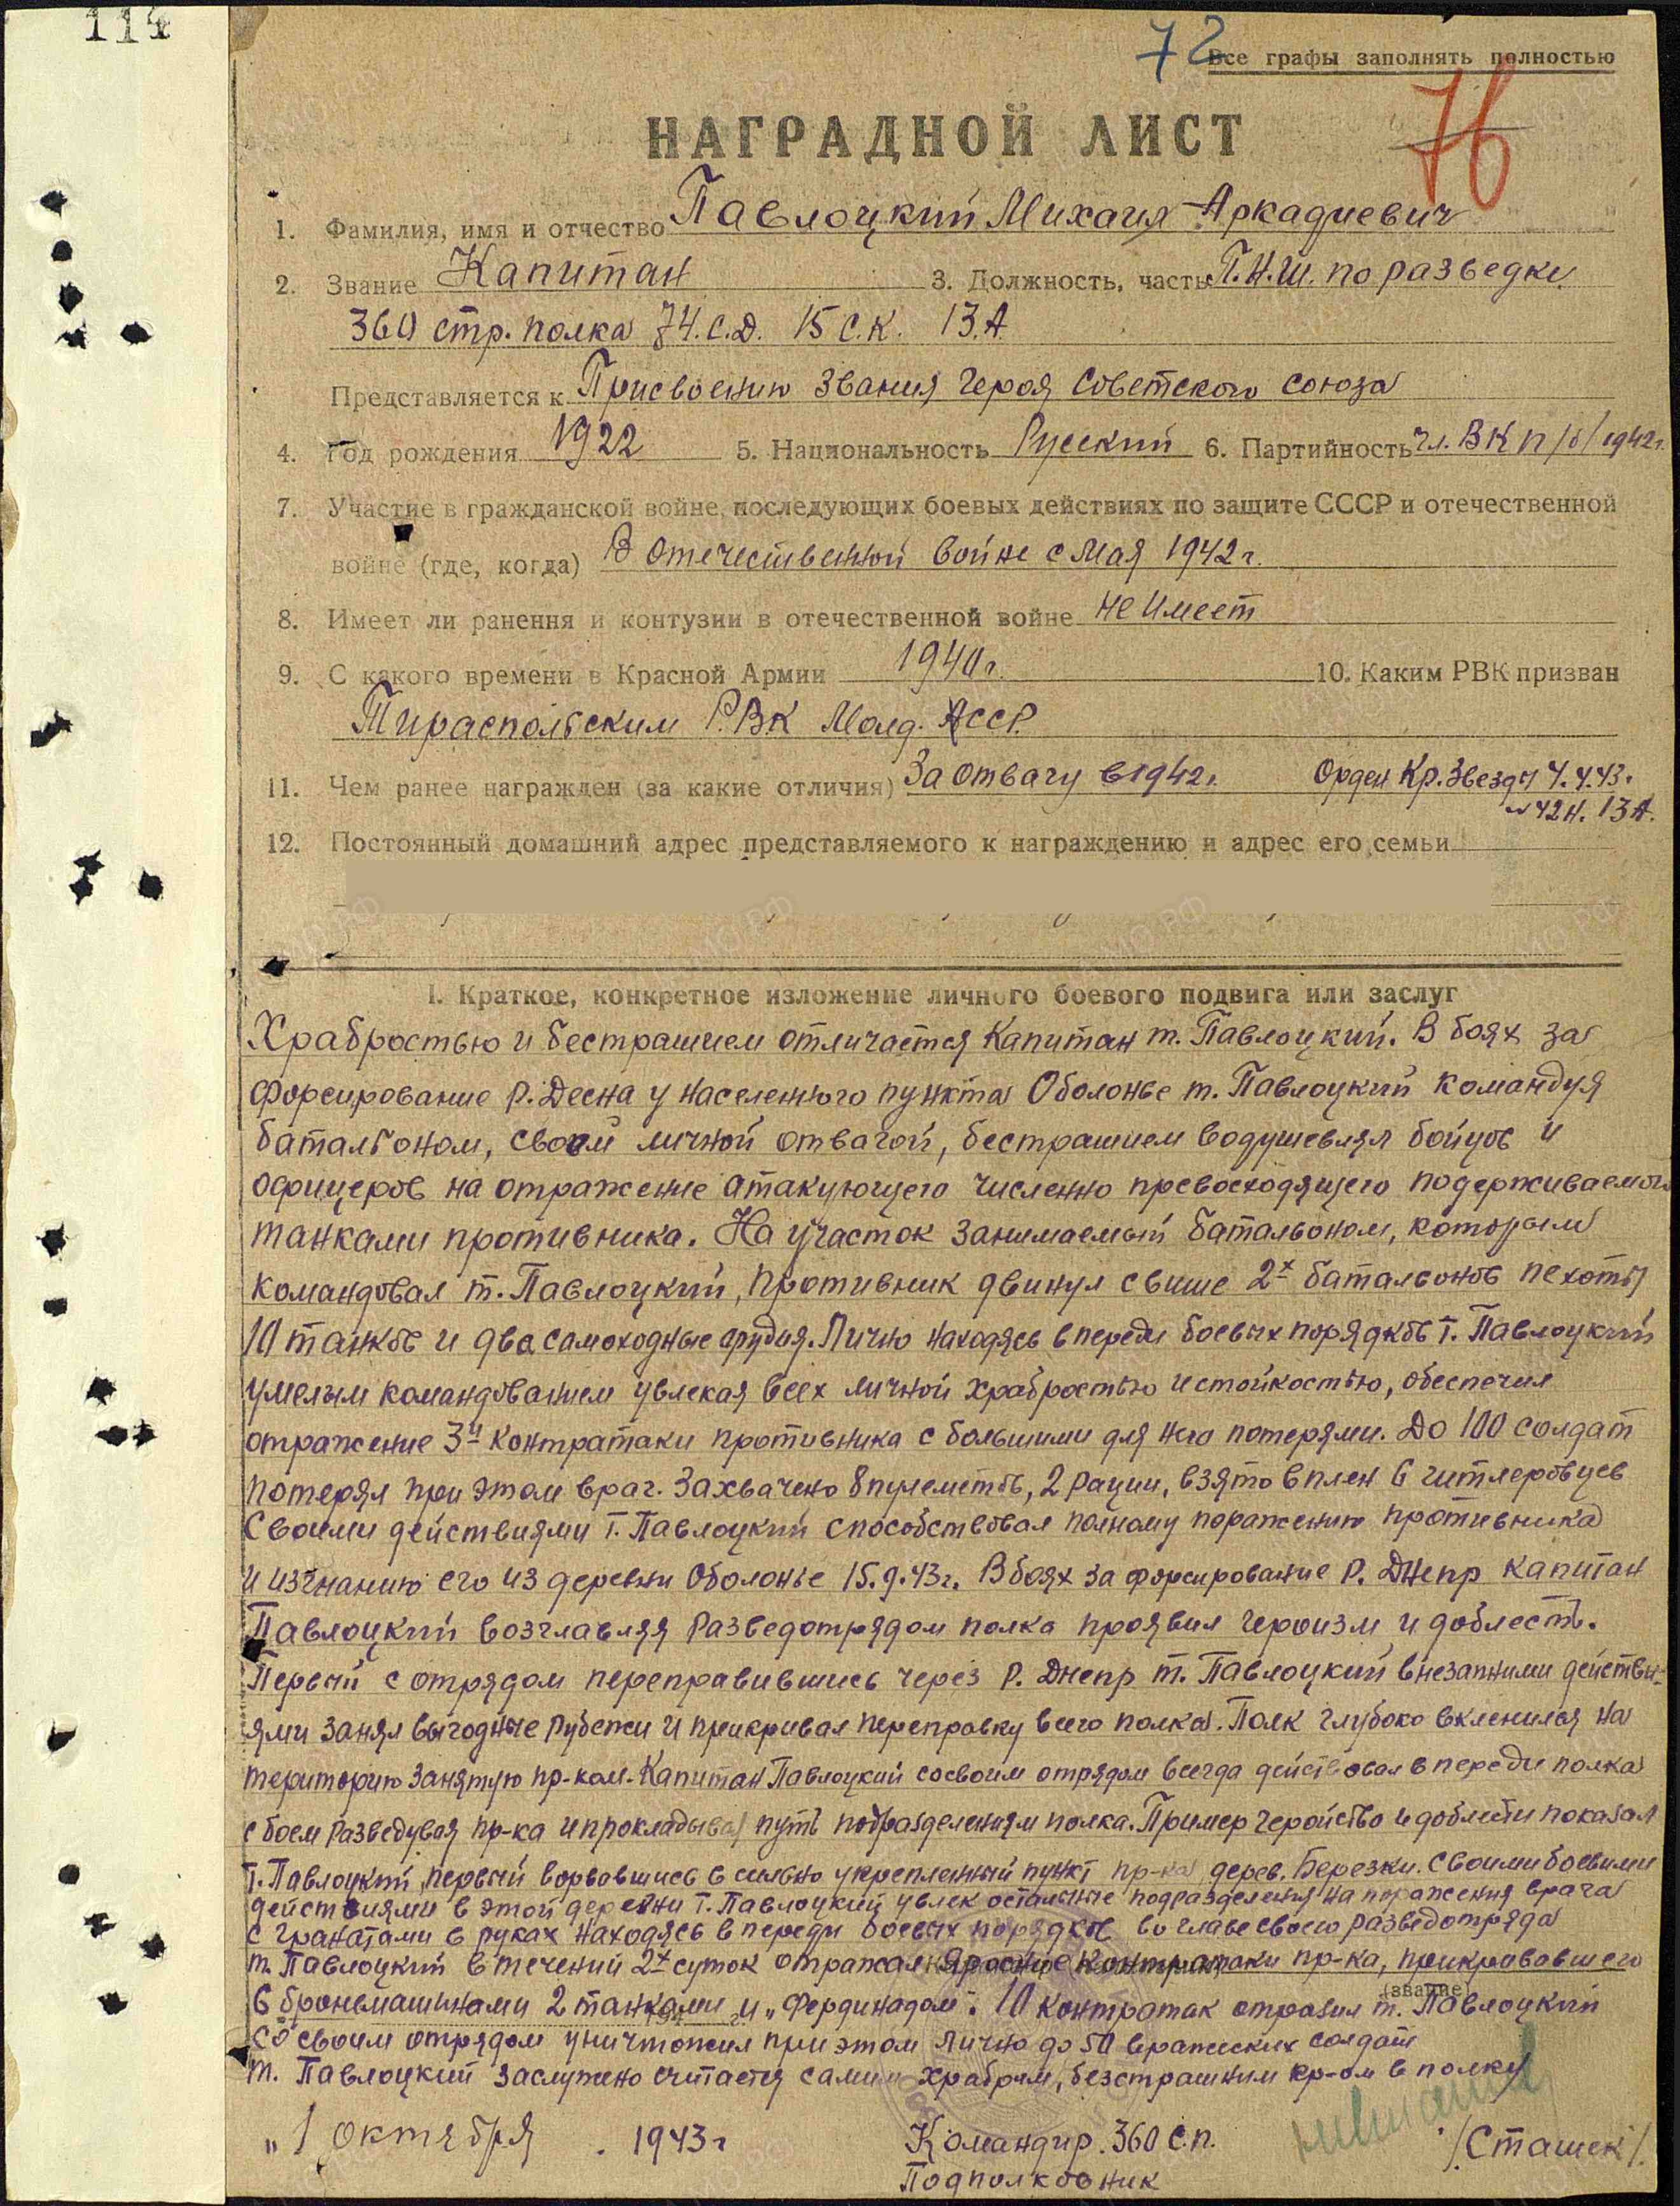 114
72
Все графы заполнять полностью
76
НАГРАДНОЙ ЛИСТ
1. Фамилия, имя и отчество Павлоцкий Михаил Аркадиевич
2. Звание Капитан 3. Должность, часть П.Н.Ш. по разведке
360 стр. полка 74. С.Д. 15 С.К. 13.А
Представляется к Присвоению звания Героя Советского Союза
4. Год рождения 1922 5. Национальность Русский 6. Партийность чл. ВКП/б/ 1942г.
7. Участие в гражданской войне, последующих боевых действиях по защите СССР и отечественной
войне (где, когда) В Отечественной войне с Мая 1942 г.
8. Имеет ли ранения и контузии в отечественной войне не имеет
9. С какого времени в Красной Армии 1940г. 10. Каким РВК призван
Тираспольским РВК Молд. АССР.
11. Чем ранее награжден (за какие отличия) За отвагу в 1942г. Орден Кр. Звезды 4.4.43г.
№ 42 н. 13А.
12. Постоянный домашний адрес представляемого к награждению и адрес его семьи
I. Краткое, конкретное изложение личного боевого подвига или заслуг
Храбростью и бестрашием отличается Капитан т. Павлоцкий. В боях за
форсирование р. Десна у населенного пункта Оболонье т. Павлоцкий командуя
батальоном, своей личной отвагой, бестрашием водушевлял бойцов и
офицеров на отражение атакующего численно превосходящего подерживаемого
танками противника. На участок занимаемый батальоном, которым
командовал т. Павлоцкий, противник двинул свыше 2х батальонов пехоты
10 танков и два самоходные орудия. Лично находясь впереди боевых порядков т. Павлоцкий
умелым командованием увлекая всех личной храбростью и стойкостью, обеспечил
отражение 3й контратаки противника с большими для него потерями. До 100 солдат
потерял при этом враг. Захвачено 8 пулеметов, 2 рации, взято в плен 6 гитлеровцев
Своими действиями т. Павлоцкий способствовал полному поражению противника
и изгнанию его из деревни Оболонье 15.9.43г. В боях за форсирование р. Днепр капитан
Павлоцкий возглавляя разведотрядом полка проявил героизм и доблесть.
Первый с отрядом переправившись через р. Днепр т. Павлоцкий внезапными действи-
ями занял выгодные рубежи и прикривал переправку всего полка. Полк глубоко вкленился на
територию занятую пр-ком. Капитан Павлоцкий со своим отрядом всегда действовал впереди полка
с боем разведувая пр-ка и прокладывая путь подразделениям полка. Пример геройство и доблести показал
т. Павлоцкий первый ворвавшись в сильно укрепленный пункт пр-ка дерев. Березки. Своими боевыми
действиями в этой деревни т. Павлоцкий увлек остальные подразделения на поражения врага
с гранатами в руках находясь впереди боевых порядков во главе своего разведотряда
т. Павлоцкий в течений 2х суток отражал яросные контратаки пр-ка, прикривавшего
(звание)
6 броньмашинами 2 танками и „Фердинадом". 10 контратак отразил т. Павлоцкий
194 г.
со своим отрядом уничтожил при этом лично до 50 вражеских солдат
т. Павлоцкий заслужено считается самим храбрым, безстрашним кр-ом в полку
„1 октября 1943г Командир 360 с.п. /Сташек/.
Подполковник